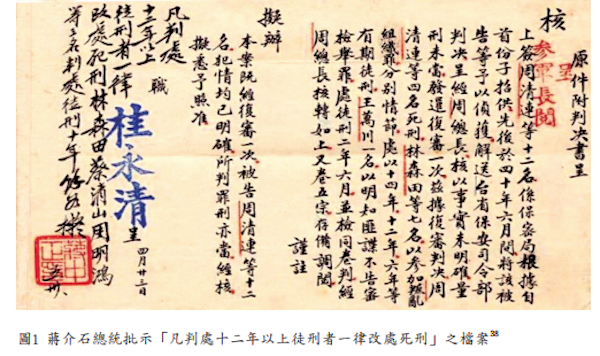 原件附判决書呈
核
呈
参軍長閱
上簽周清連等十二名係保密局根據自
首份子指供先後於四十年六月間將該被
告等予以偵獲解送台省保安司令部
判决呈經周總長核以事實未明確量
刑未當發還復審一次茲據復審判决周
清連等四名死刑林森田等七名以參加叛亂
組織罪分別情節處以十四年、十二年、六年等
有期徒刑王萬川一名以明知匪諜不告密
檢舉罪處徒刑二年六月並檢同卷判經
周總長核轉如上又卷五宗存備調閱
謹註
擬辦
本案既經復審一次被告周清連等十二
名犯情均已明確所判罪刑亦當經核
擬悉予照准
職
桂永清
呈
四月廿三日
凡判處
十二年以上
徒刑者一律
改處死刑林森田蔡消山周明鴻
等三名判處徒刑十年餘照擬
圖1 蔣介石總統批示「凡判處十二年以上徒刑者一律改處死刑」之檔案38